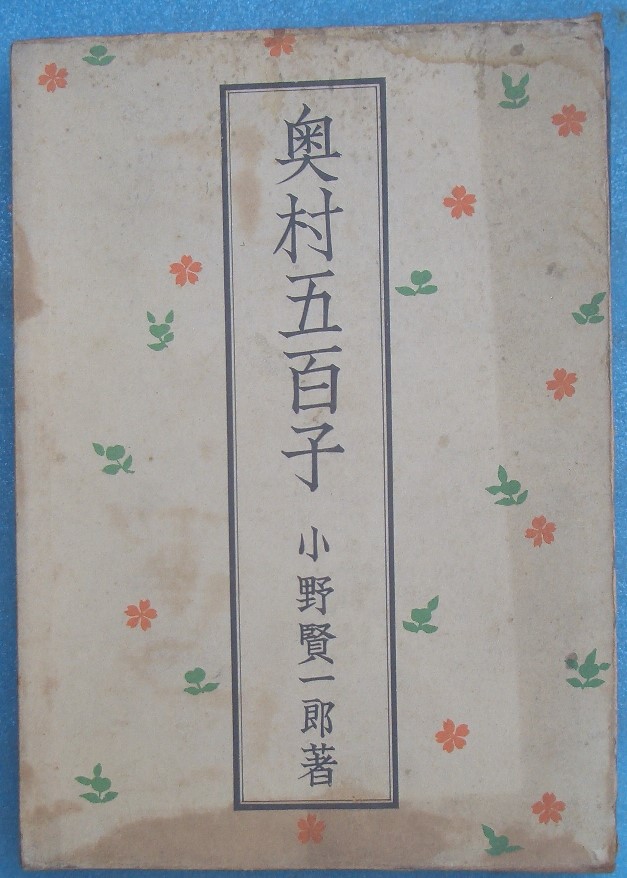 奥村五百子 小野賢一郎著